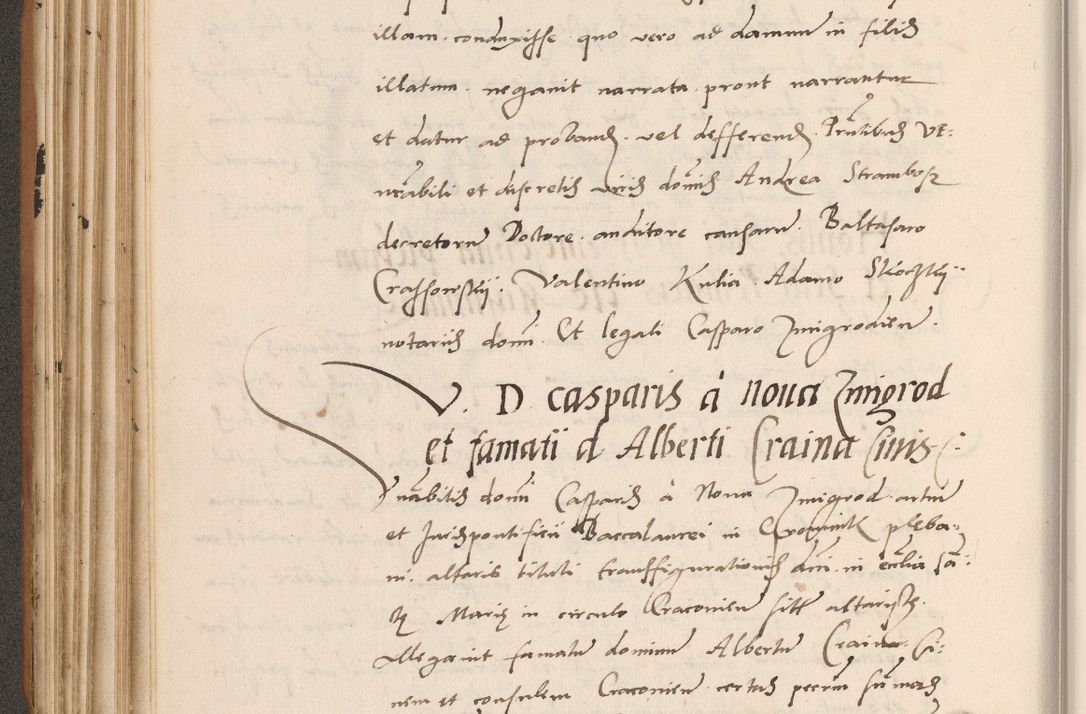 illam conduxisse quo vero ad damnum in filiis
illatum negavit narrata prout narrantur
et datur ad proband. vel defferend. Pntibus ve:
nerabili et discretis viris dominis Andrea Strambosz
decretorum Doctore auditore causarum Baltasaro
Crassowskij. Valentino Kulia Adamo Skoczkij
notariis domini Et legali Casparo Zmigrodien.
V. D casparis à noua Zmigrod
et famati d Alberti Craina Ciuis
Venabilis domini Casparis à Noua Zmigrod artium
et Jurispontificii Baccalaurei in pleba:
ni. altaris tituli transfigurationis dni in ecclia san:
te Marie in circulo Cracovien site altariste.
Allegavit famatum dominum Albertum Craina Ci:
vem et consulem Cracovien certas pecun summas